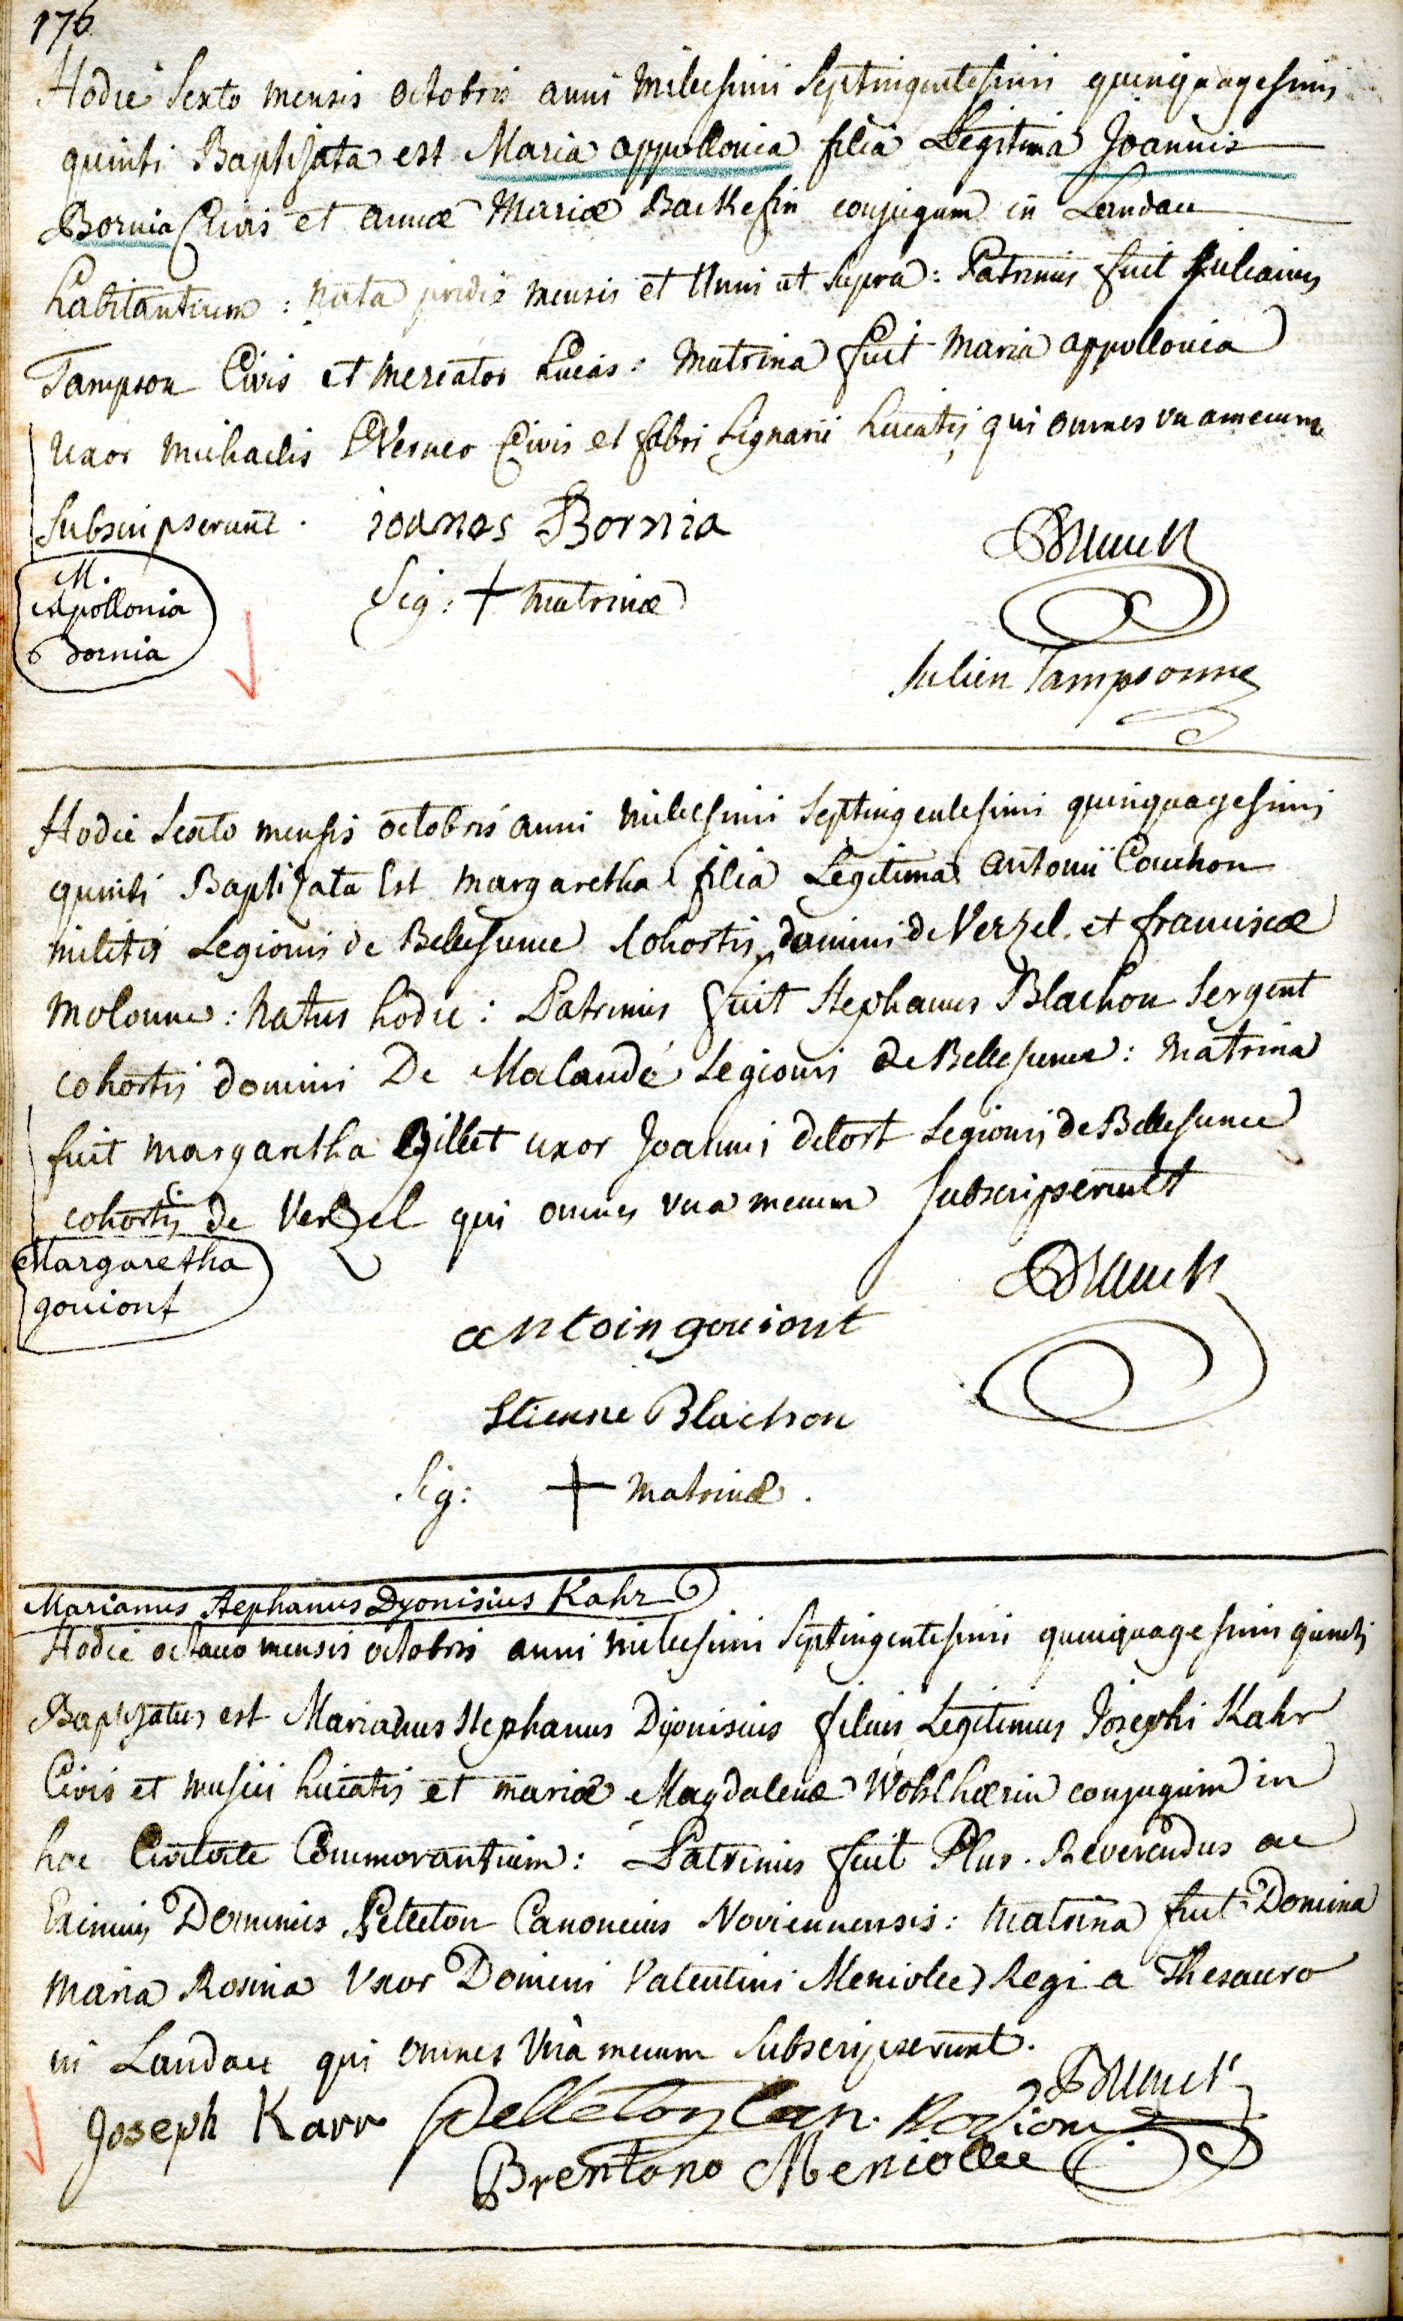 176
Hodie Sexto mensis octobris anni millesimi Septingentesimi quinquagesimi
quinti Baptisata est Maria appollonia filia Legitima Joannis
Bornia Civis et annæ Mariæ Backesin conjugum in Landau
habitantium : nata pridie mensis et anni ut supra : Patrinus fuit Julianus
Tampson Civis et mercator Lucas : matrina fuit maria appollonia
uxor michaelis Verner Civis et fabri Lignarii Lucatis, qui omnes una mecum
subscripserunt . ioanes Bornia
M.
Apollonia
Bornia
Sig : + matrinæ
Julien Tampsonne
Hodie Sexto mensis octobris anni millesimi Septingentesimi quinquagesimi
quinti Baptisata Est margaretha filia Legitima antonii Couchon
militis Legionis de Bellesunce Cohortis domini de Verzel et franciscæ
molonne : natus hodie : Patrinus fuit Stephanus Blachon Sergent
cohortis domini De Malaudé Legionis de Bellesunce : matrina
fuit margaretha Billet uxor Joannis delort Legionis de Bellesunce
cohortis de Verzel qui omnes una mecum subscripserunt
Margaretha
gouiont
antoin gouiont
Stienne Blachon
Sig : + matrinæ .
Marianus Stephanus Dyonisius Kahr
Hodie octavo mensis octobris anni millesimi Septingentesimi quinquagesimi quinti
Baptisatus est Marianus Stephanus Dyonisius filius Legitimus Josephi Kahr
Civis et musici Lucatis et mariæ Magdalenæ Wohlhærin conjugum in
hac Civitate Commorantium : Patrinus fuit Plur. Reverendus ac
Eximius Dominus Pelleton Canonicus Noviennensis : matrina fuit Domina
maria Rosina Uxor Domini Valentini Meniolle Regi a Thesauro
in Landau qui omnes una mecum Subscripserunt .
Joseph Karr Pelleton Can.
Brentano Meniollee